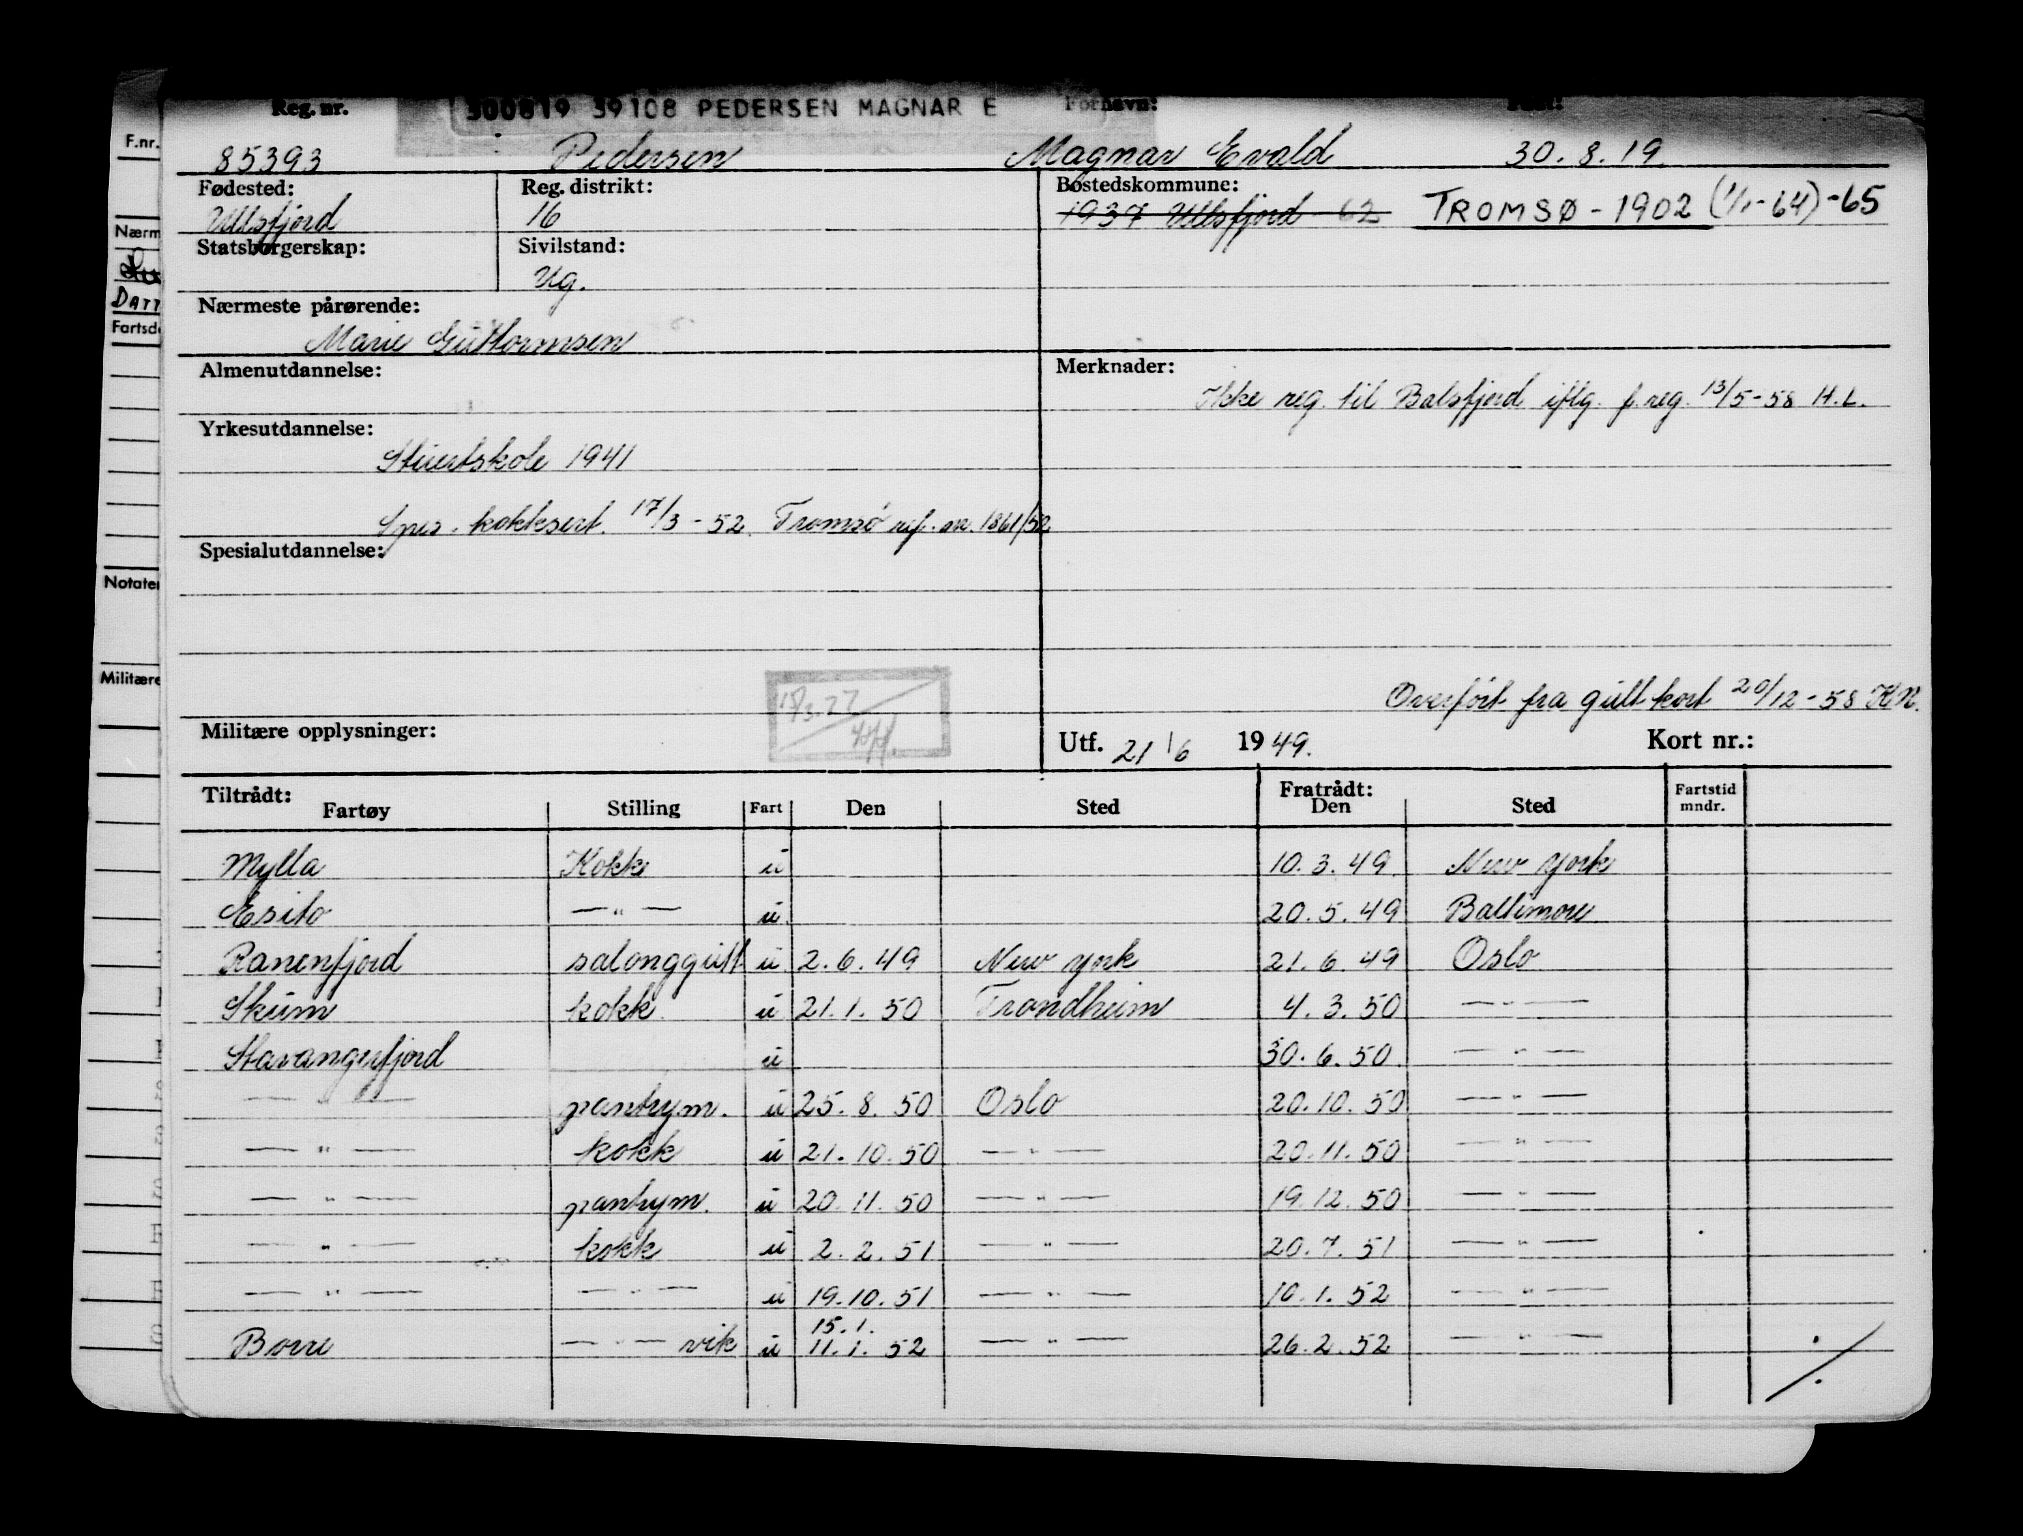 Reg. nr. 300819 39108 PEDERSEN MAGNAR E Fornavn:
85393 Pedersen Magnar Evald 30.8.19
Fødested: Reg. distrikt: Bostedskommune:
Ullsfjord 16 1937 Ullsfjord - 62 TROMSØ - 1902 (1/1-64) -65
Statsborgerskap: Sivilstand:
Ug.
Nærmeste pårørende:
Marie Guttormsen
Almenutdannelse: Merknader:
Ikke reg. til Balsfjord iflg. f.reg. 13/5-58 H.L.
Yrkesutdannelse:
Stuertskole 1941
kokksert. 17/3-52. Tromsø ref. nr. 1861/52
Spesialutdannelse:
Overført fra gult kort 20/12-58 KN.
Militære opplysninger: Utf. 21/6 1949. Kort nr.:
Tiltrådt: Fratrådt: Fartstid
Fartøy Stilling Fart Den Sted Den Sted mndr.
Mylla Kokk u 10.3.49 New York
Esito —"— u 20.5.49 Baltimore
Ranenfjord salonggutt u 2.6.49 New York 21.6.49 Oslo
Skum kokk u 21.1.50 Trondheim 4.3.50 —"—
Stavangerfjord u 30.6.50. —"—
—"— pantrym. u 25.8.50 Oslo 20.10.50 —"—
—"— kokk u 21.10.50 —"— 20.11.50 —"—
—"— pantrym. u 20.11.50 —"— 19.12.50 —"—
—"— kokk u 2.2.51 —"— 20.7.51 —"—
—"— —"— u 19.10.51 —"— 10.1.52 —"—
15.1.
Borre —"— vik u 11.1.52 —"— 26.2.52 —"— ./.
F.nr.
Nærm
DATT
Fartsd
Notater
Militære